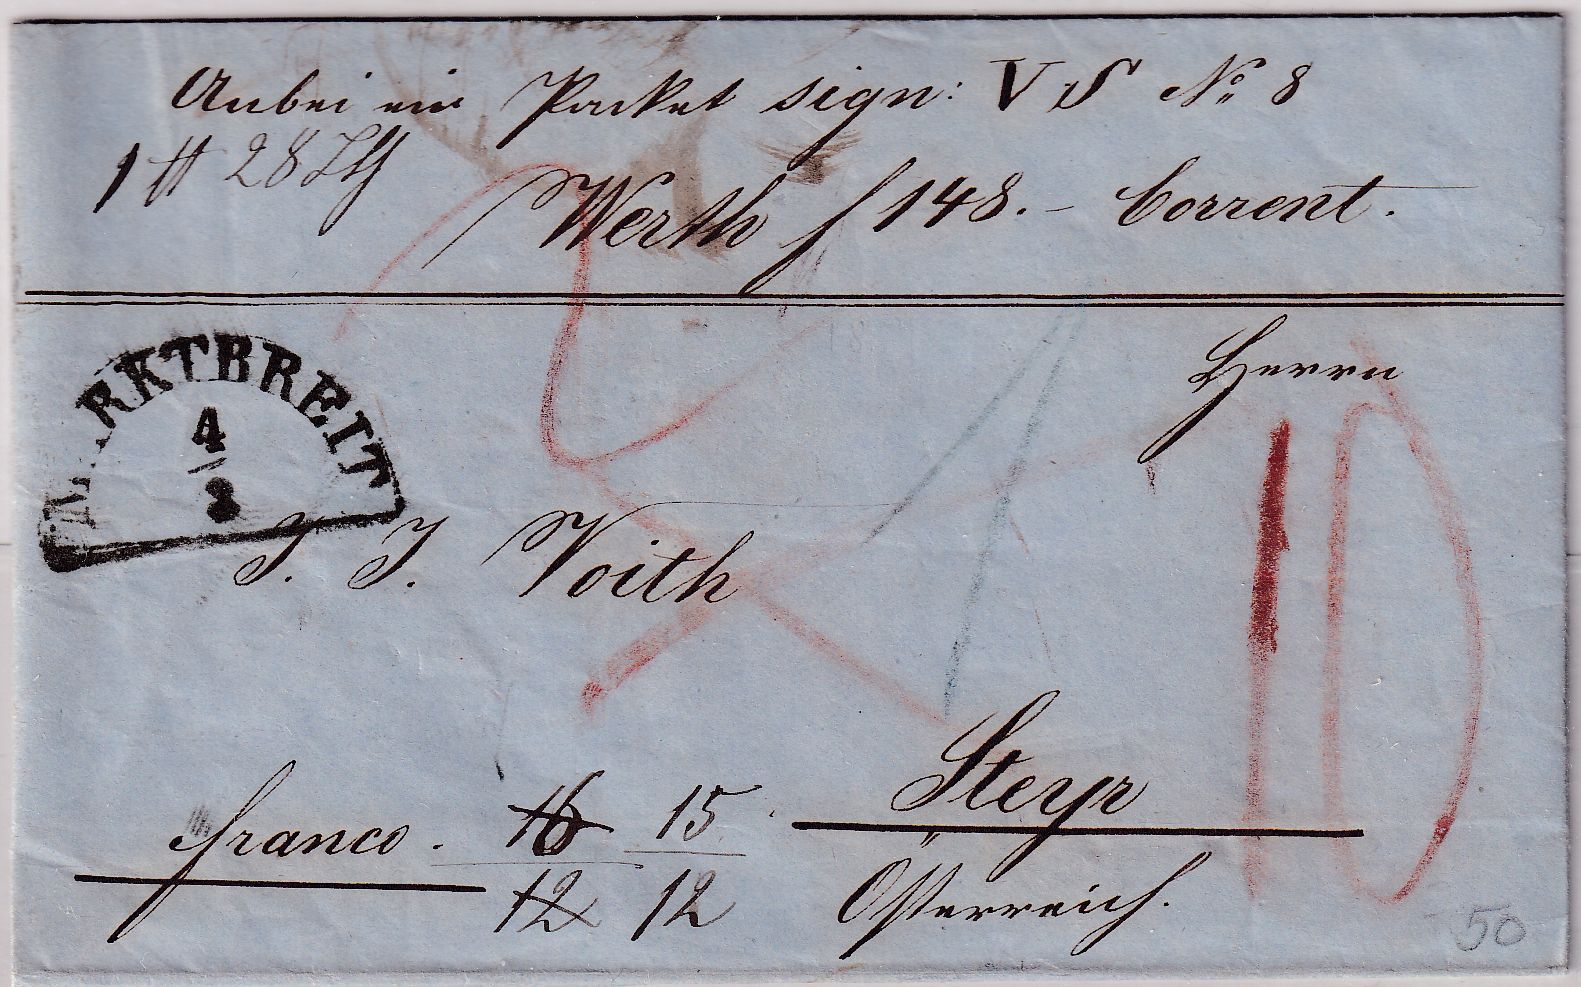 Anbei ein Packet sign: V S No 8
1 ℔ 28 Lth
Werth f 148.- Corrent.
MARKTBREIT
4
3
Herrn
J. J. Voith
10
Steyr
franco. 16 15
12 12
Österreich.
50